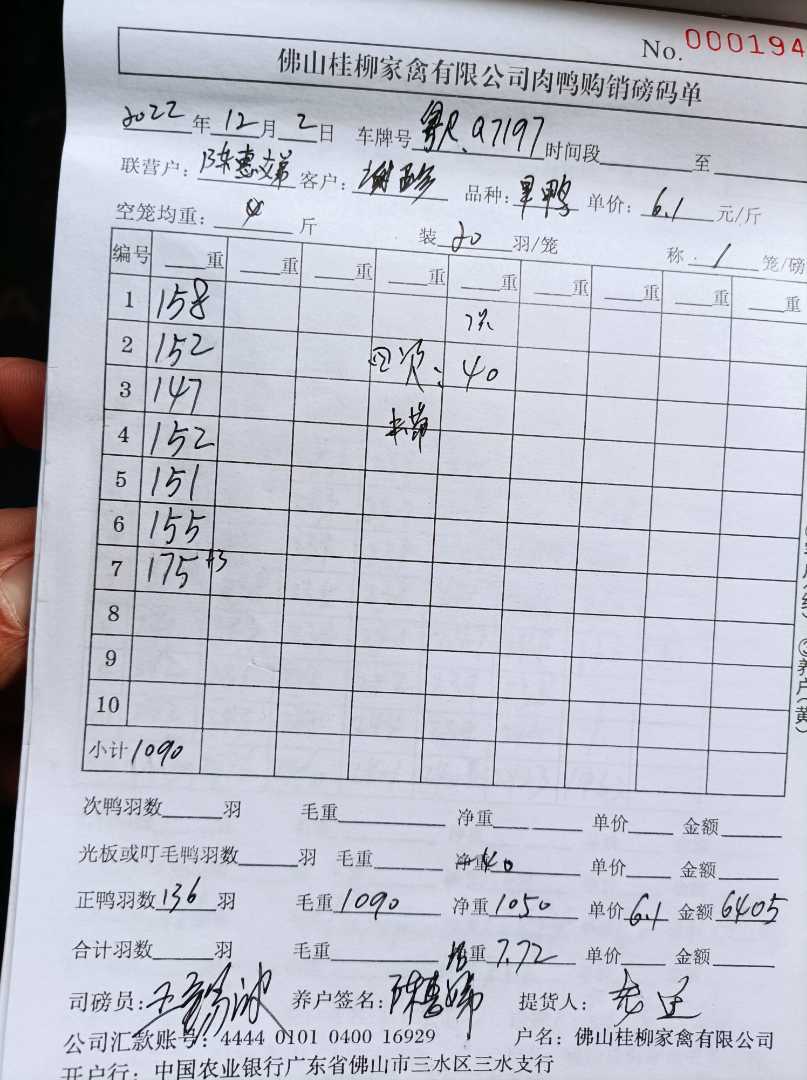 No. 000194
佛山桂柳家禽有限公司肉鸭购销磅码单
2022年12月2日 车牌号粤R.Q7197时间段 至
联营户：陈惠娣 客户： 品种：旱鸭 单价：6.1元/斤
空笼均重： 斤 装20羽/笼 称1笼/磅
编号 重 重 重 重 重 重 重 重 重
1 158
2 152 40
3 147
4 152
5 151
6 155
7 175+3
8
9
10
小计 1090
次鸭羽数 羽 毛重 净重 单价 金额
光板或叮毛鸭羽数 羽 毛重 净重 40 单价 金额
正鸭羽数136羽 毛重1090 净重1050 单价6.1 金额6405
合计羽数 羽 毛重 重7.72 单价 金额
司磅员： 养户签名：陈惠娣 提货人：
公司汇款账号：4444 0101 0400 16929 户名：佛山桂柳家禽有限公司
开户行：中国农业银行广东省佛山市三水区三水支行
养户(黄)